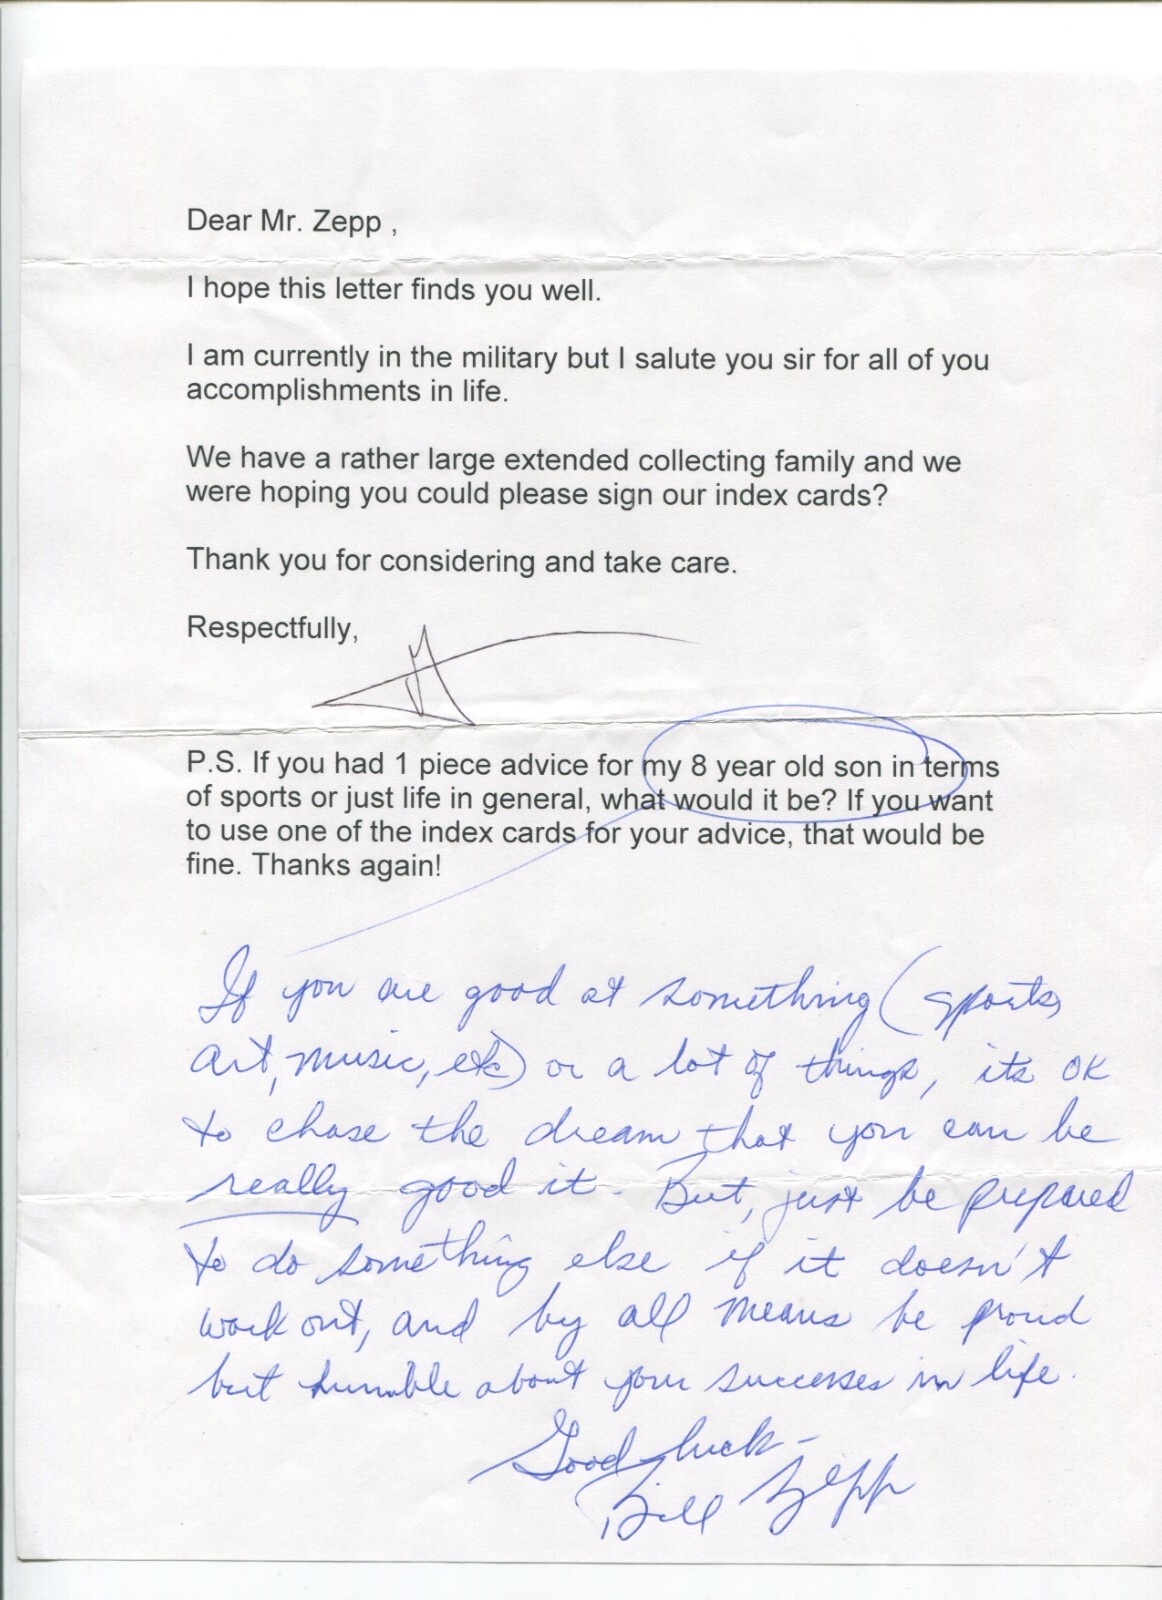 Dear Mr. Zepp ,
I hope this letter finds you well.
I am currently in the military but I salute you sir for all of you
accomplishments in life.
We have a rather large extended collecting family and we
were hoping you could please sign our index cards?
Thank you for considering and take care.
Respectfully,
P.S. If you had 1 piece advice for my 8 year old son in terms
of sports or just life in general, what would it be? If you want
to use one of the index cards for your advice, that would be
fine. Thanks again!
If you are good at something (sports,
art, music, etc) or a lot of things, its OK
to chase the dream that you can be
really good it. But, just be prepared
to do something else if it doesn't
work out, and by all means be proud
but humble about your successes in life.
Good luck -
Bill Zepp